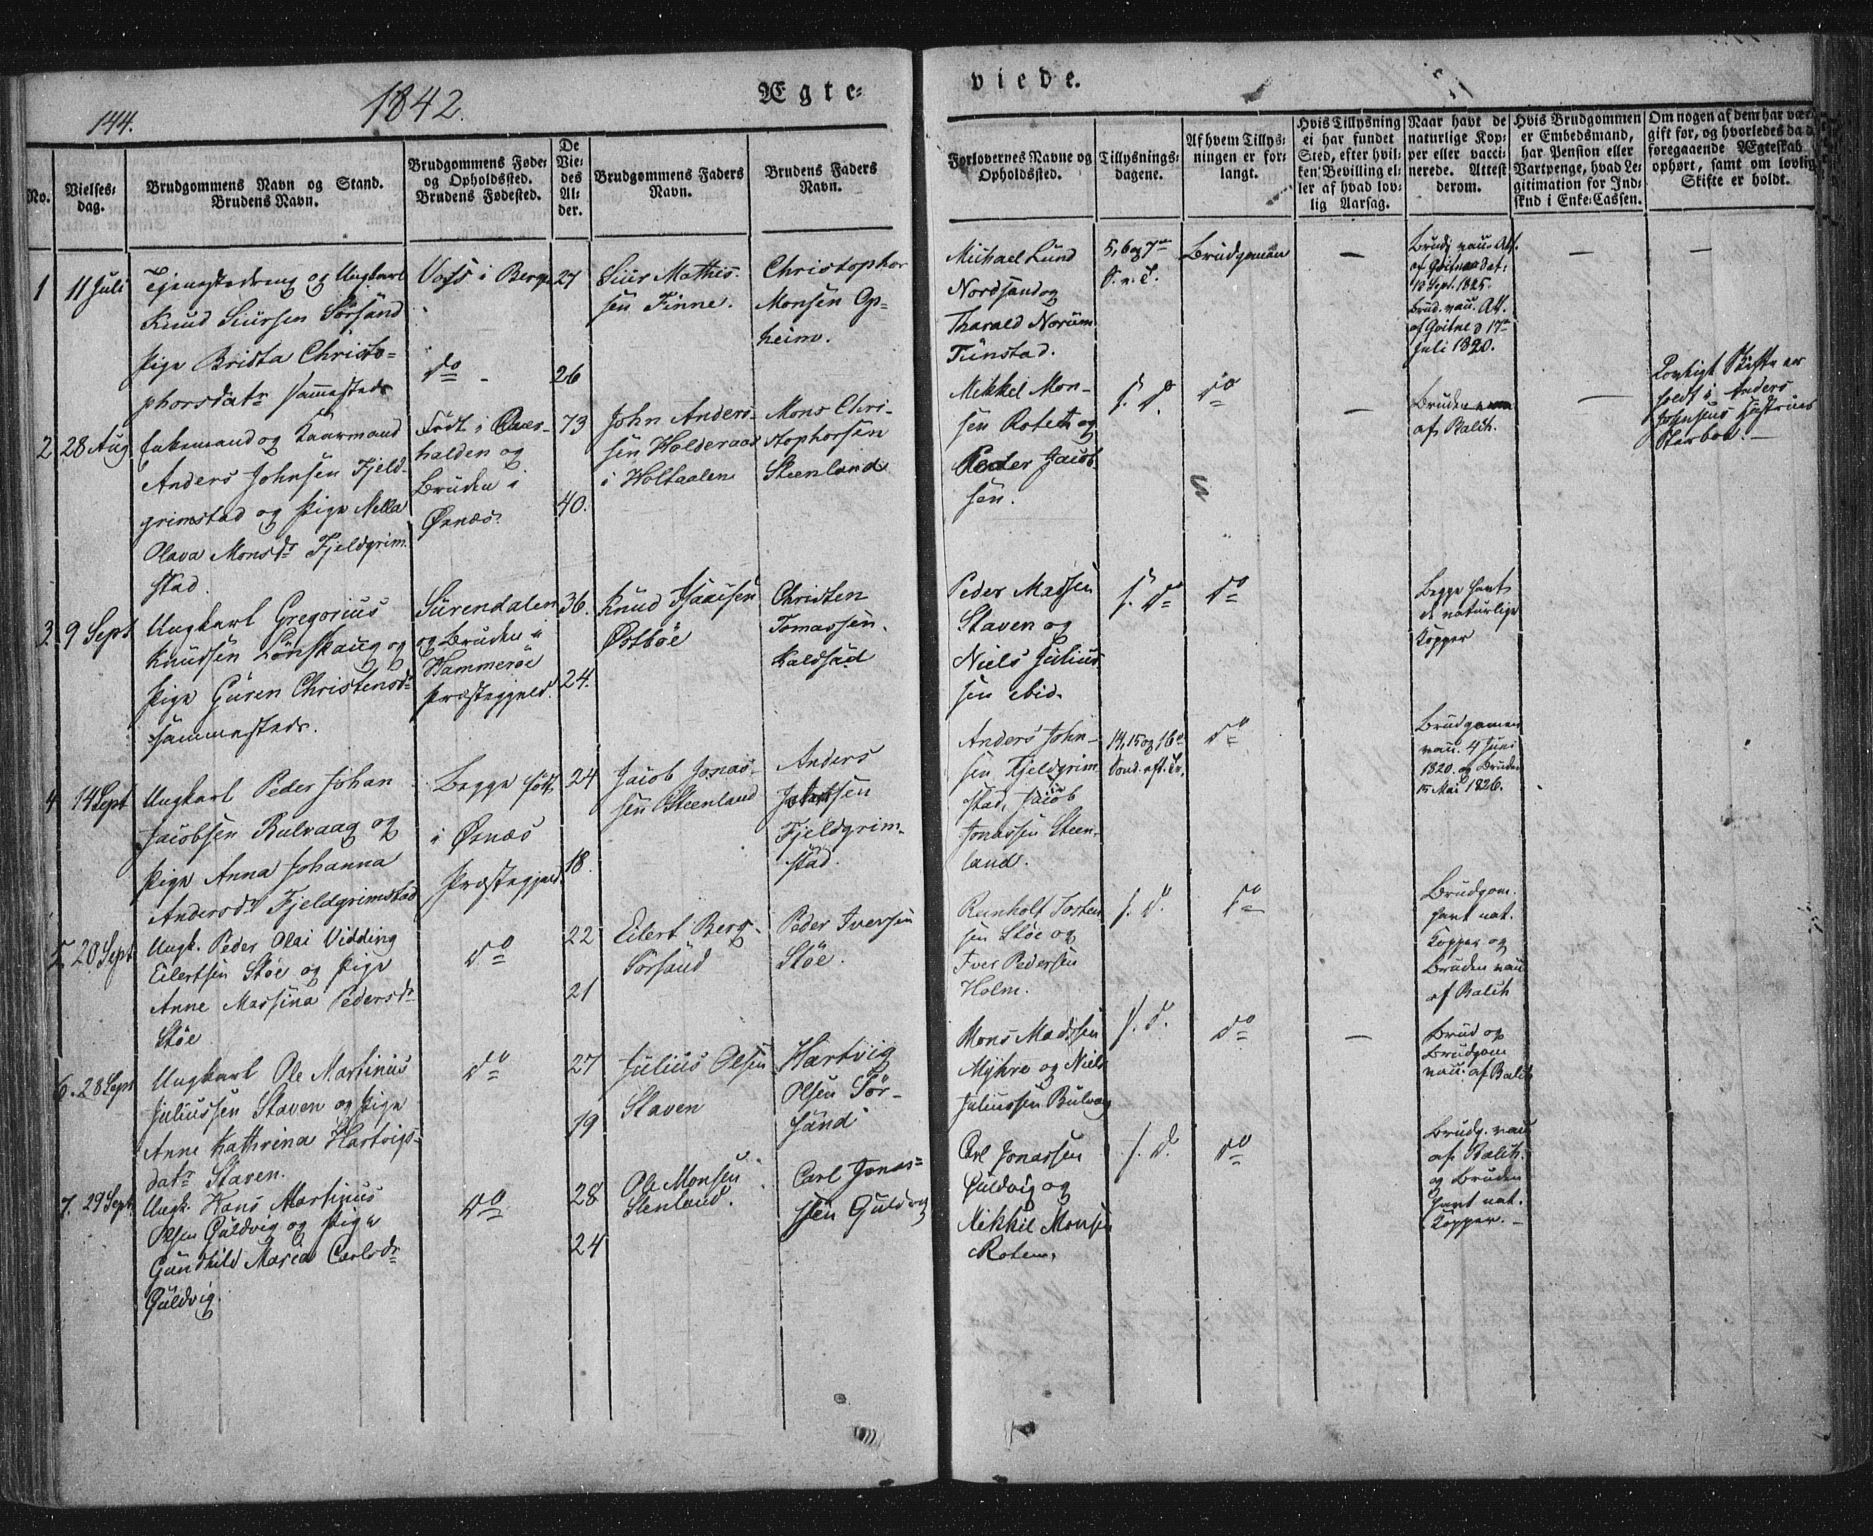 144.
1842.
Ægte-
viede.
No.
Vielses-
dag.
Brudgommens Navn og Stand.
Brudens Navn.
Brudgommens Føde-
og Opholdssted.
Brudens Fødested.
De
Vie-
des
Al-
der.
Brudgommens Faders
Navn.
Brudens Faders
Navn.
Forlovernes Navne og
Opholdssted.
Tillysnings-
dagene.
Af hvem Tillys-
ningen er for-
langt.
Hvis Tillysning
ei har fundet
Sted, efter hvil-
ken Bevilling el-
ler af hvad lov-
lig Aarsag.
Naar havt de
naturlige Kop-
per eller vacci-
nerede. Attest
derom.
Hvis Brudgommen
er Embedsmand,
har Pension eller
Vartpenge, hvad Le-
gitimation for Ind-
skud i Enke-Cassen.
Om nogen af dem har vær
gift for, og hvorledes da d
foregaaende Ægteskab
ophørt, samt om lovlig
Skifte er holdt.
1
11 Juli
Tjenestedreng og Ungkarl
Knud Siursen Sørsand
Pige Brista Christo-
phorsdatr sammesteds
Voss i Bergn
do -
27
26
Siur Mathis-
sen Finne.
Christophor
Monsen Op-
heim.
Michael Lund
Nordsand og
Tharald Norum
Tunstad.
5, 6 og 7de
S. e. T.
Brudgomen
—
Brudg. vau. Att.
af Gvitne Dat:
18 Sept. 1825.
Brud. vau. Att.
af Gvitne d 17de
Juli 1820.
—
—
2
28 Aug
Enkemand og Kaarmand
Anders Johnsen Fjeld-
grimstad og Pige Nella
Olava Monsdr Fjeldgrim
stad.
Født i Over-
halden og
Bruden i
Øsnæs.
73
40.
John Anders-
sen Holderaas
i Holtaalen
Mons Chri-
stophorsen
Steenland
Mikkel Mon-
sen Roten og
Peder Jacob
sen.
s. d.
do
—
Bruden
af Balth.
—
Lovligt Skifte er
holdt i Anders
Johnsens
Sterboe. —
3
9 Sept
Ungkarl Gregorius
Knudsen Lønskaug og
Pige Guren Christensdr
sammesteds.
Surendalen
og Bruden i
Hammerøe
Præstegjeld.
36.
24.
Knud Isaaisen
Østbøe
Christen
Tomassen
Kaldsad
Peder Madsen
Staven og
Niels Julius
sen ibid.
s. do
do
Begge havt
de naturlige
Kopper
4
14 Sept
Ungkarl Peder Johan
Jacobsen Bulvaag og
Pige Anna Johanna
Andersdr Fjeldgrimstad
Begge født
i Øsnæs
Præstegjeld
24
18.
Jacob Jonas-
sen Steenland
Anders
Johnsen
Fjeldgrim-
stad.
Anders John-
sen Fjeldgrim
stad, Jacob
Jonassen Steen-
land.
14, 15 og 16de
Sønd. eft. Tr.
do
Brudgomen
vau. 4 Juni
1820. og Bruden
15 Mai 1826.
5
20 Sept
Ungk. Peder Olai Vidding
Eilertsen Støe og Pige
Anne Massina Pedersdr
Støe
do
22
21
Eilert Berg
Sørsand
Peder Iversen
Støe.
Runholt Tosten
sen Støe og
Iver Pedersen
Holm.
s. d.
do
Brudgom.
havt nat.
Kopper og
Bruden vau.
af Balth
6.
28 Sept
Ungkarl Ole Martinus
Juliussen Staven og Pige
Anne Kathrina Hartvigs-
datr Staven.
do
27
19
Julius Olsen
Staven
Hartvig
Olsen Sør-
sand
Mons Madssen
Myhre og Niels
Juliussen Bulvag
s. d.
do
—
Brud og
Brudgom
vau. af Balth
7.
29 Sept.
Ungk. Hans Martinus
Olsen Guldvig og Pige
Gundhild Maria Carlsdr
Guldvig.
do
28
24
Ole Monsen
Stenland.
Carl Jonas-
sen Guldvig
Carl Jonassen
Guldvig og
Mikkil Monsen
Roten.
s. d.
do
Brudg. vau
af Balth.
og Bruden
havt nat.
Kopper. —